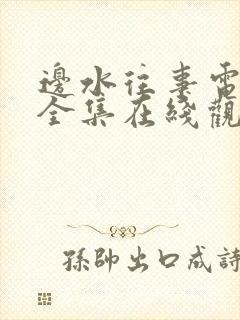 邊水往事電
全集在綫觀
孫帥出口成詩